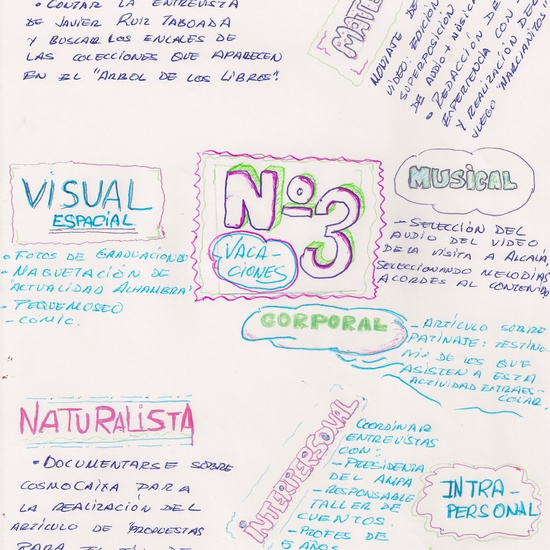 • CONTAR LA ENTREVISTA
DE JAVIER RUIZ TABOADA
Y BUSCAR LOS ENLACES DE
LAS COLECCIONES QUE APARECEN
EN EL "ARBOL DE LOS LIBROS".
MATE
MEDIATE DE
VIDEO: EDICIÓN
SUPERPOSICIÓN
DE AUDIO + MÚSICA
• REDACCIÓN DE
EXPERIENCIA CON
Y REALIZACIÓN DEL
JUEGO "MARCIANITOS"
VISUAL
ESPACIAL
• FOTOS DE GRADUACIONES
- MAQUETACIÓN DE
"ACTUALIDAD ALHAMBRA"
- PEQUEMUSEO
- COMIC.
Nº3
VACA-
CIONES
MUSICAL
- SELECCIÓN DEL
AUDIO DEL VIDEO
DE LA VISITA A ALCALÁ,
SELECCIONANDO MELODIAS
ACORDES AL CONTENIDO
CORPORAL
- ARTÍCULO SOBRE
PATINAJE: TESTIMO-
NIO DE LOS QUE
ASISTEN A ESTA
ACTIVIDAD EXTRAES-
COLAR.
NATURALISTA
• DOCUMENTARSE SOBRE
COSMOCAIXA PARA
LA REALIZACIÓN DEL
ARTÍCULO DE "PROPUESTAS
PARA EL DE
INTERPERSONAL
COORDINAR
ENTREVISTAS
CON:
- PRESIDENTA
DEL AMPA
- RESPONSABLE
TALLER DE
CUENTOS.
- PROFES DE
5 AÑOS
INTRA-
PERSONAL